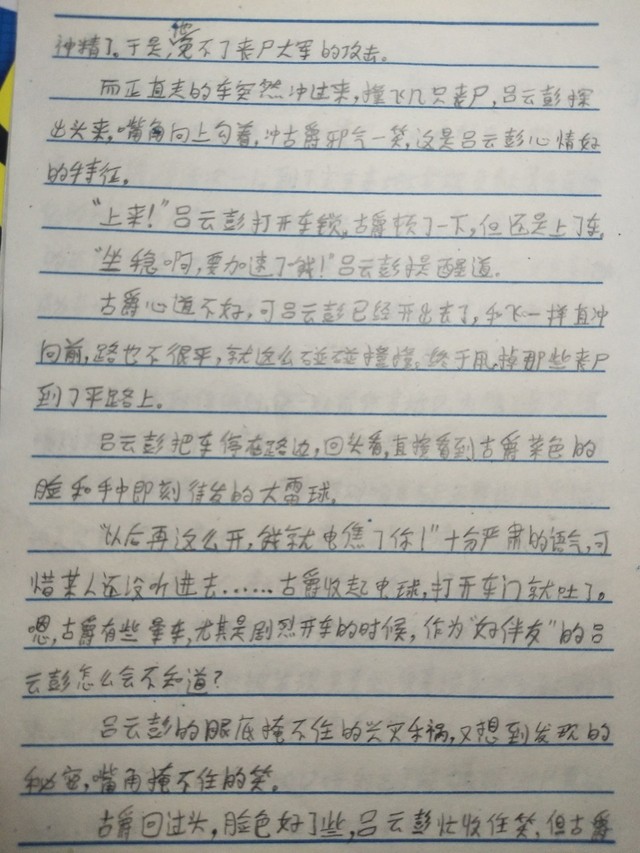 神精了。于是，他免不了丧尸大军的攻击。
而正直走的车突然冲过来，撞飞几只丧尸，吕云彭探
出头来，嘴角向上勾着，冲古爵邪气一笑，这是吕云彭心情好
的特征。
“上来！”吕云彭打开车锁，古爵顿了一下，但还是上了车。
“坐稳啊，要加速了哦！”吕云彭提醒道．
古爵心道不好，可吕云彭已经开出去了，和飞一样直冲
向前，路也不很平，就这么碰碰撞撞，终于甩掉那些丧尸
到了平路上。
吕云彭把车停在路边，回头看，直接看到古爵菜色的
脸和手中即刻待发的大雷球．
“以后再这么开，我就电焦了你！”十分严肃的语气，可
惜某人还没听进去……古爵收起电球，打开车门就吐了。
嗯，古爵有些晕车，尤其是剧烈开车的时候，作为“好伴友”的吕
云彭怎么会不知道？
吕云彭的眼底掩不住的兴灾乐祸，又想到发现的
秘密，嘴角掩不住的笑。
古爵回过头，脸色好了些，吕云彭忙收住笑，但古爵